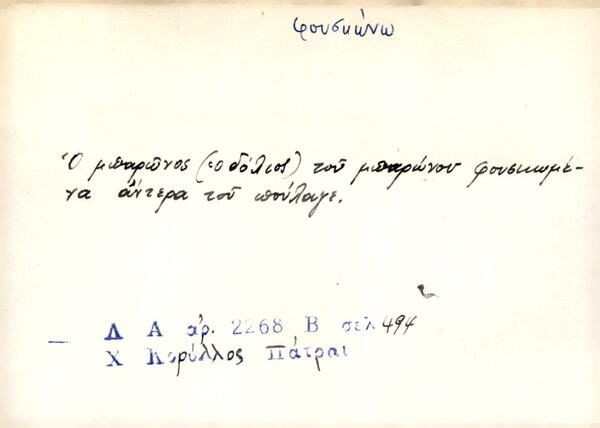 φουσκώνω
Ὁ μπαρῶνος (ὁ δόλιος) τοῦ μπαρώνου φουσκωμέ-
να ἄντερα τοῦ πούλαγε.
Λ Α ἀρ. 2268 Β σελ 494
Χ Κορύλλος Πάτραι